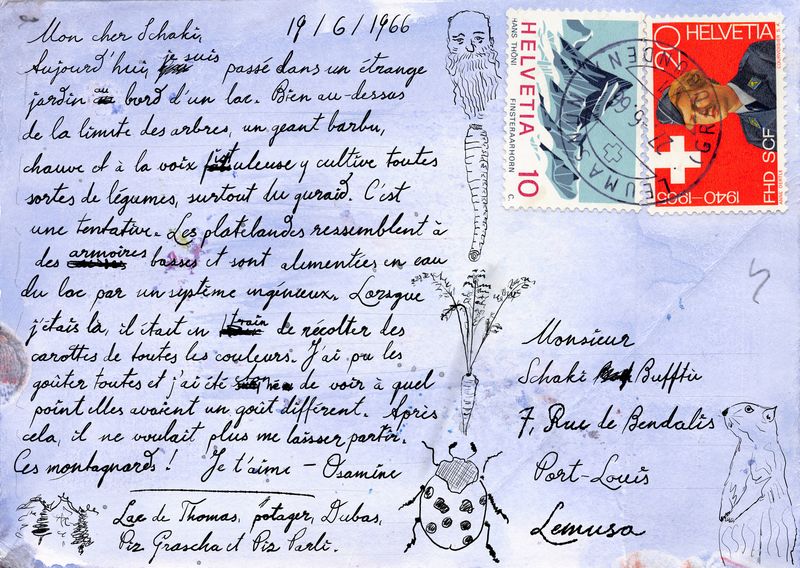 19/6/1966
Mon cher Schaki,
Aujourd'hui, je suis passé dans un étrange
jardin au bord d'un lac. Bien au-dessus
de la limite des arbres, un géant barbu,
chauve et à la voix uleuse y cultive toutes
sortes de légumes, surtout du guraid. C'est
une tentative. Les platebandes ressemblent à
des armoires basses et sont alimentées en eau
du lac par un système ingénieux. Lorsque
j'étais là, il était en train de récolter des
carottes de toutes les couleurs. J'ai pu les
goûter toutes et j'ai été de voir à quel
point elles avaient un goût différent. Après
cela, il ne voulait plus me laisser partir.
Ces montagnards! Je t'aime – Osamine
Lac de Thomas, potager, Dubas,
Piz Grascha et Piz Parli.
HELVETIA
HANS THÖNI
FINSTERAARHORN
10
C.
HELVETIA
20
FHD SCF
1940–1965
Monsieur
Schaki Bufftir
7, Rue de Bendalis
Port-Louis
Lemusa